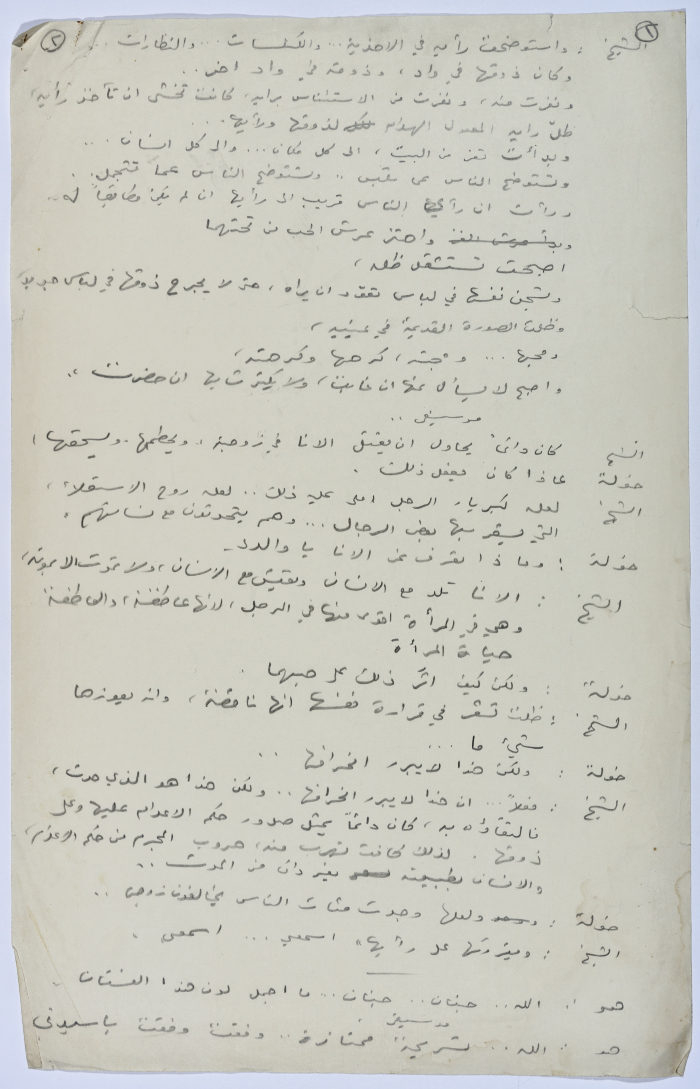 ٢
٢
الشيخ : واستوضحت رأيه في الاحذية .. والكلسات ... والنظارات ...
وكان ذوقها في واد ، وذوقه في واد اخر ..
ونفرت منه ، ونفرت من الاستئناس برايه ، كانت تخشى ان تأخذ رأيه ،
رايه لذوقها ورأيها ...
وبدأت تفر من البيت ، الى كل مكان ... والى كل انسان ...
وتستوضح الناس عن .. وتستوضح الناس عما ..
ورأت ان رأي الناس قريب الى رأيها ان لم يكن مطابقاً له ..
واهتز عرش الحب من تحتهما
اصبحت تستثقل ظله ،
نفسها في لباس تعود ان يراه ، حتى لا يجرح ذوقها في لباس جديد
وظلت الصورة القديمة في عينيه ،
ومجها ... ومجته ، كرهها وكرهته ،
واصبح لا يسأل عنها ان غابت ، ولا يكترث بها ان حضرت ..
موسيقى ..
الشيخ كان دائماً يحاول ان يقتل الانا في زوجته ، ويحطمها . ويسحقها !
خولة لماذا كان يفعل ذلك .
الشيخ لعله كبرياء الرجل املى عليه ذلك .. لعله روح الاستعلاء ،
التي يشعر بها بعض الرجال ... وهم يتحدثون مع نسائهم .
خولة : وماذا تعرف عن الانا يا والدي .
الشيخ : الانا تلد مع الانسان وتعيش مع الانسان ، ولا تموت الا بموته ،
وهي في المرأة اقوى منها في الرجل ، لانها عاطفة ، والعاطفة
حياة المرأة
خولة : ولكن كيف اثر ذلك على حبهما .
الشيخ : ظلت تشعر في قرارة نفسها انها ناقصة ، وانه يعوزها
شيء ما ...
خولة : ولكن هذا لا يبرر انحرافها ..
الشيخ : فعلاً ... ان هذا لا يبرر انحرافها .. ولكن هذا هو الذي حدث ،
فالتقاؤه به ، كان دائماً يمثل صدور حكم الاعدام عليها وعلى
ذوقها . لذلك كانت تهرب منه ، هروب المجرم من حكم الاعدام ،
والانسان بطبيعته يفر دائماً من الموت ..
خولة : ولعلها وجدت مئات الناس يخالفون زوجها ..
الشيخ : على رأيها ، اسمعي ... اسمعي .
هو : الله .. حنان .. حنان .. ما اجمل لون هذا الفستان
موسيقى
هو : الله .. تسريحة ممتازة .. وفقت وفقت يا سيدتي